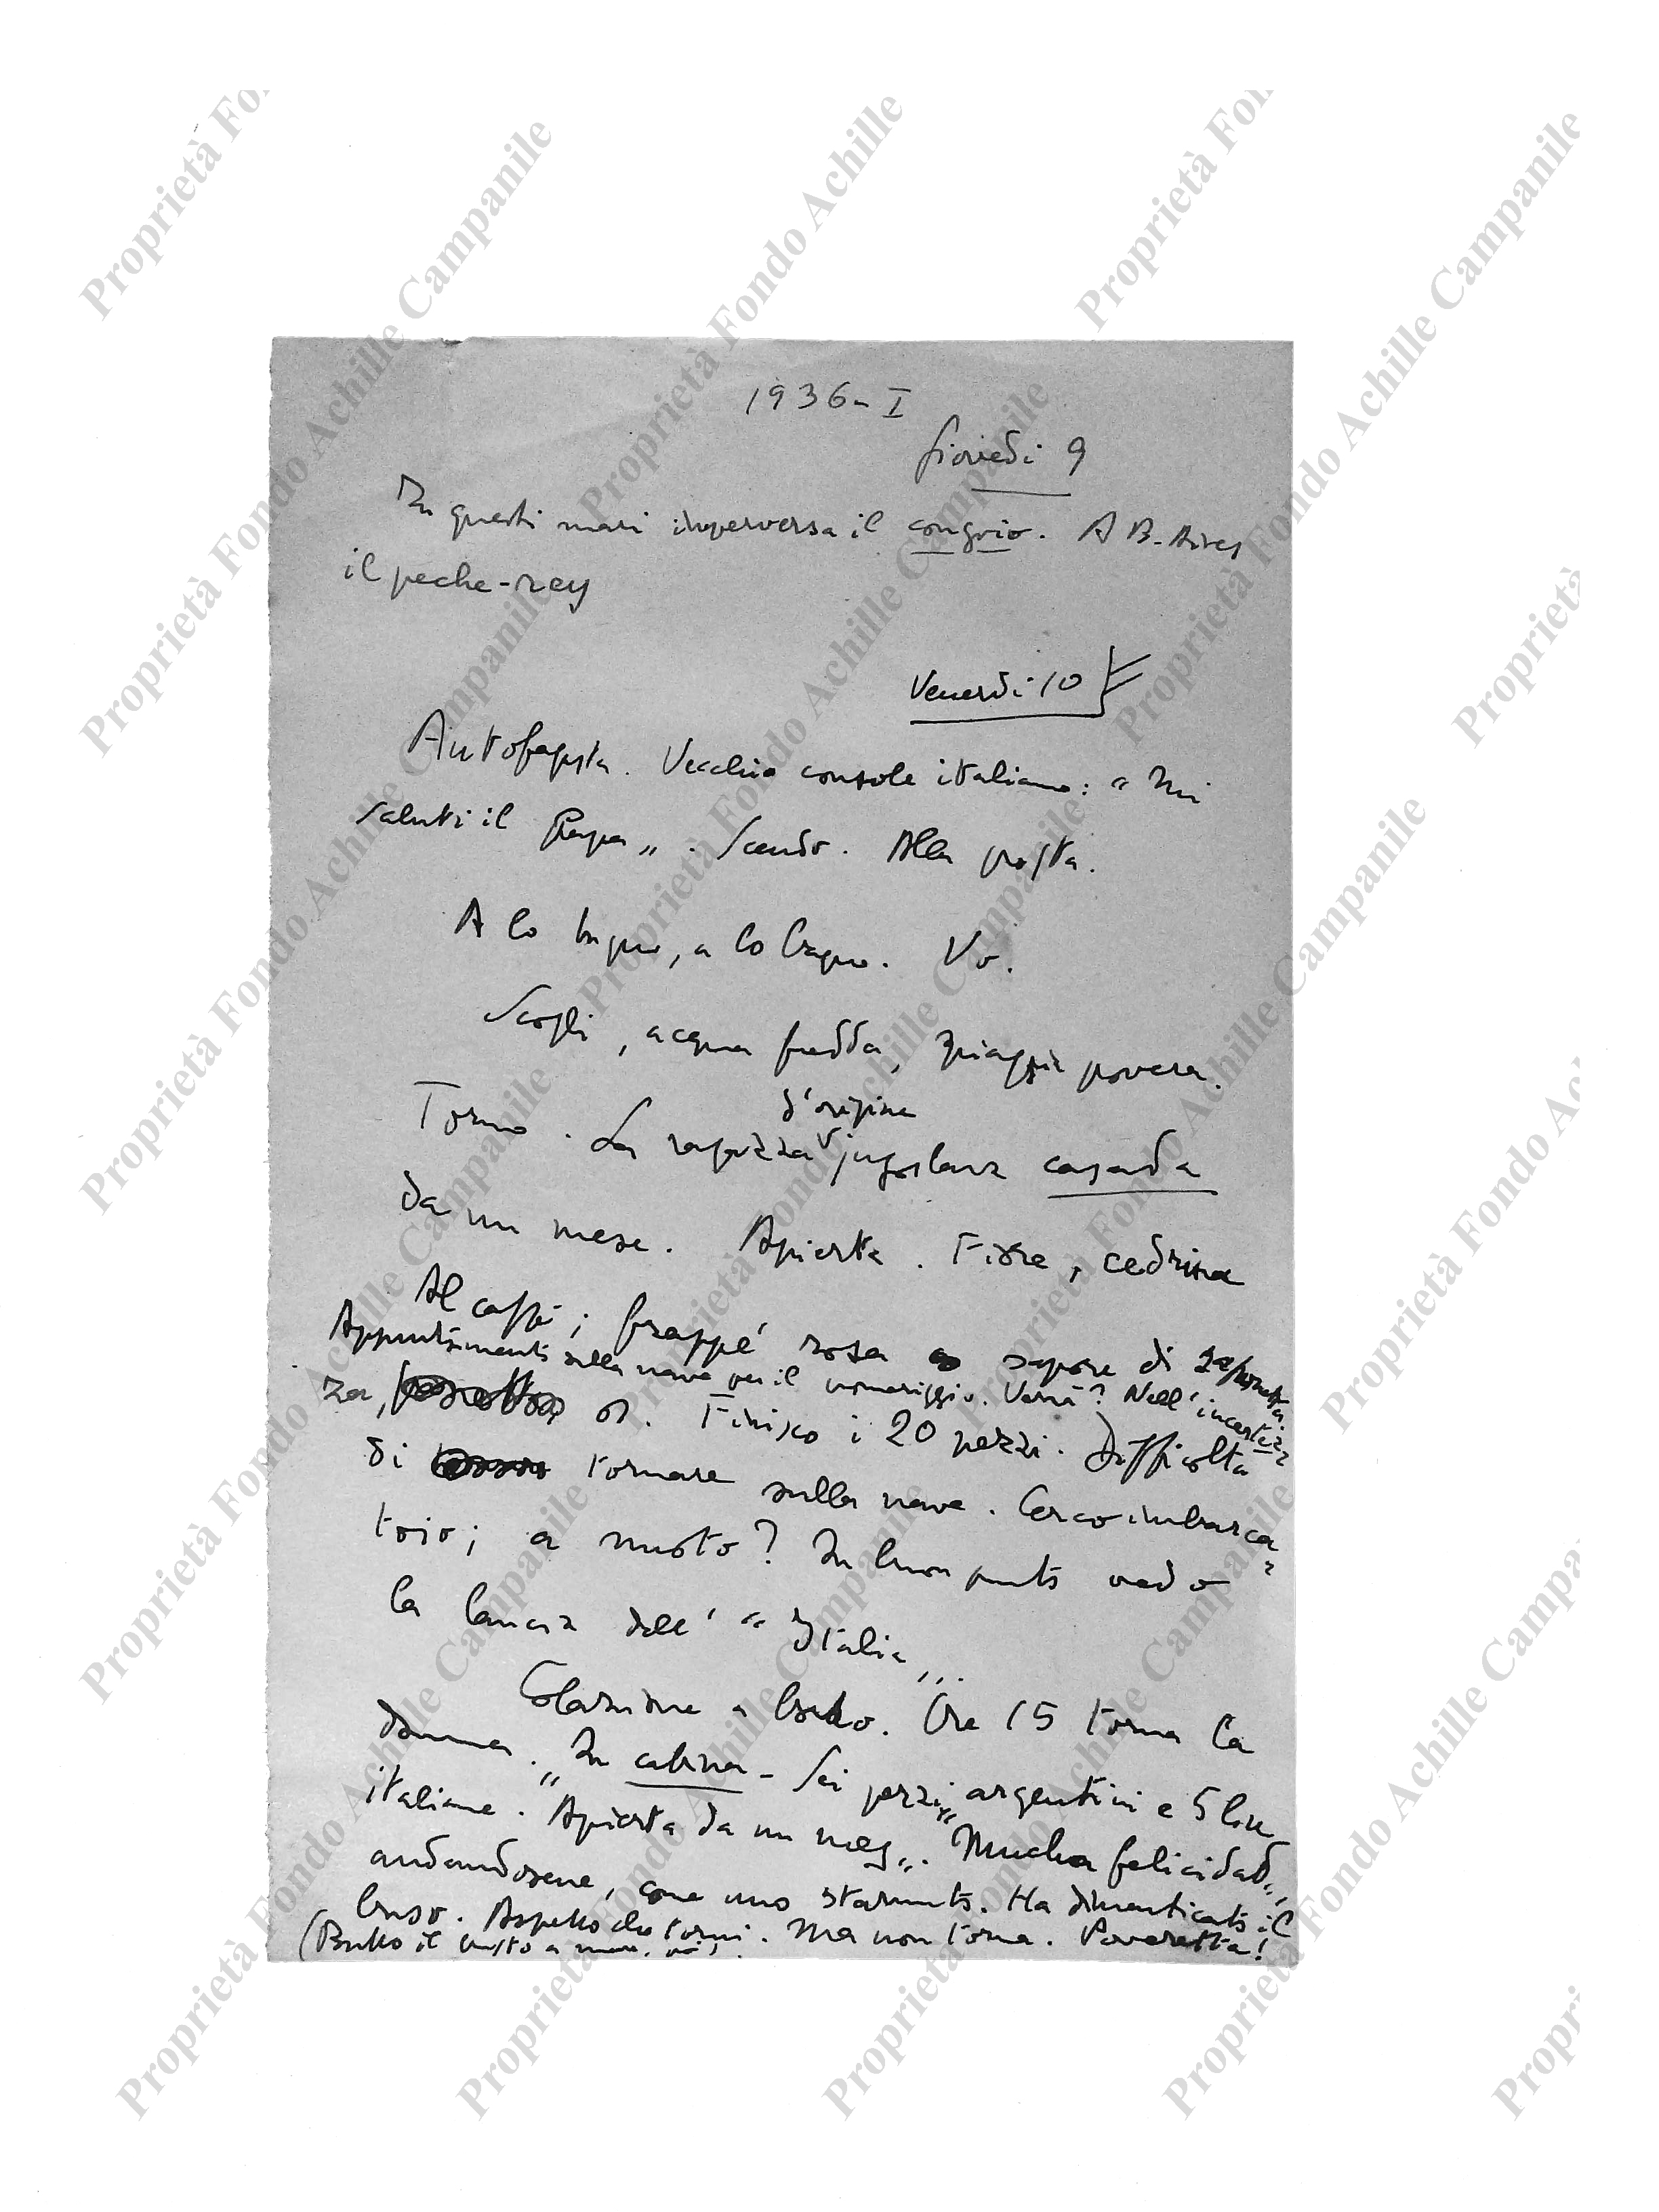 1936-I
Giovedì 9
In questi mari imperversa il congrio. A B. Aires
il peche-rey
Venerdì 10
Antofagasta. Vecchio console italiano: "Mi
saluti il Papa". Scendo. Alla posta.
A lo bagno, a lo bagno. Vo.
Scogli, acqua fredda, spiaggia povera.
d'origine
Torno. La ragazza jugoslava casada
da un mese. Apierta. Fiore, cedrina
Al caffè; frappé rosa sapore di
Appuntamento sulla nave per il pomeriggio. Verrà? Nell'incertez-
za, sì. Finisco i 20 pezzi. Difficoltà
di tornare sulla nave. Cerco imbarca-
toio; a nuoto? In buon punto vedo
la lancia dell' "Italia".
Colazione a bordo. Ore 15 torna la
donna. "In cabina - Sei pezzi argentini e 5 lire
italiane. "Apierta da un mes". "Mucha felicidad",
andandosene, come uno starnuto. Ha dimenticato il
busto. Aspetto che torni. Ma non torna. Poveretta!
(Butto il busto a mare.
Proprietà Fondo Achille Campanile